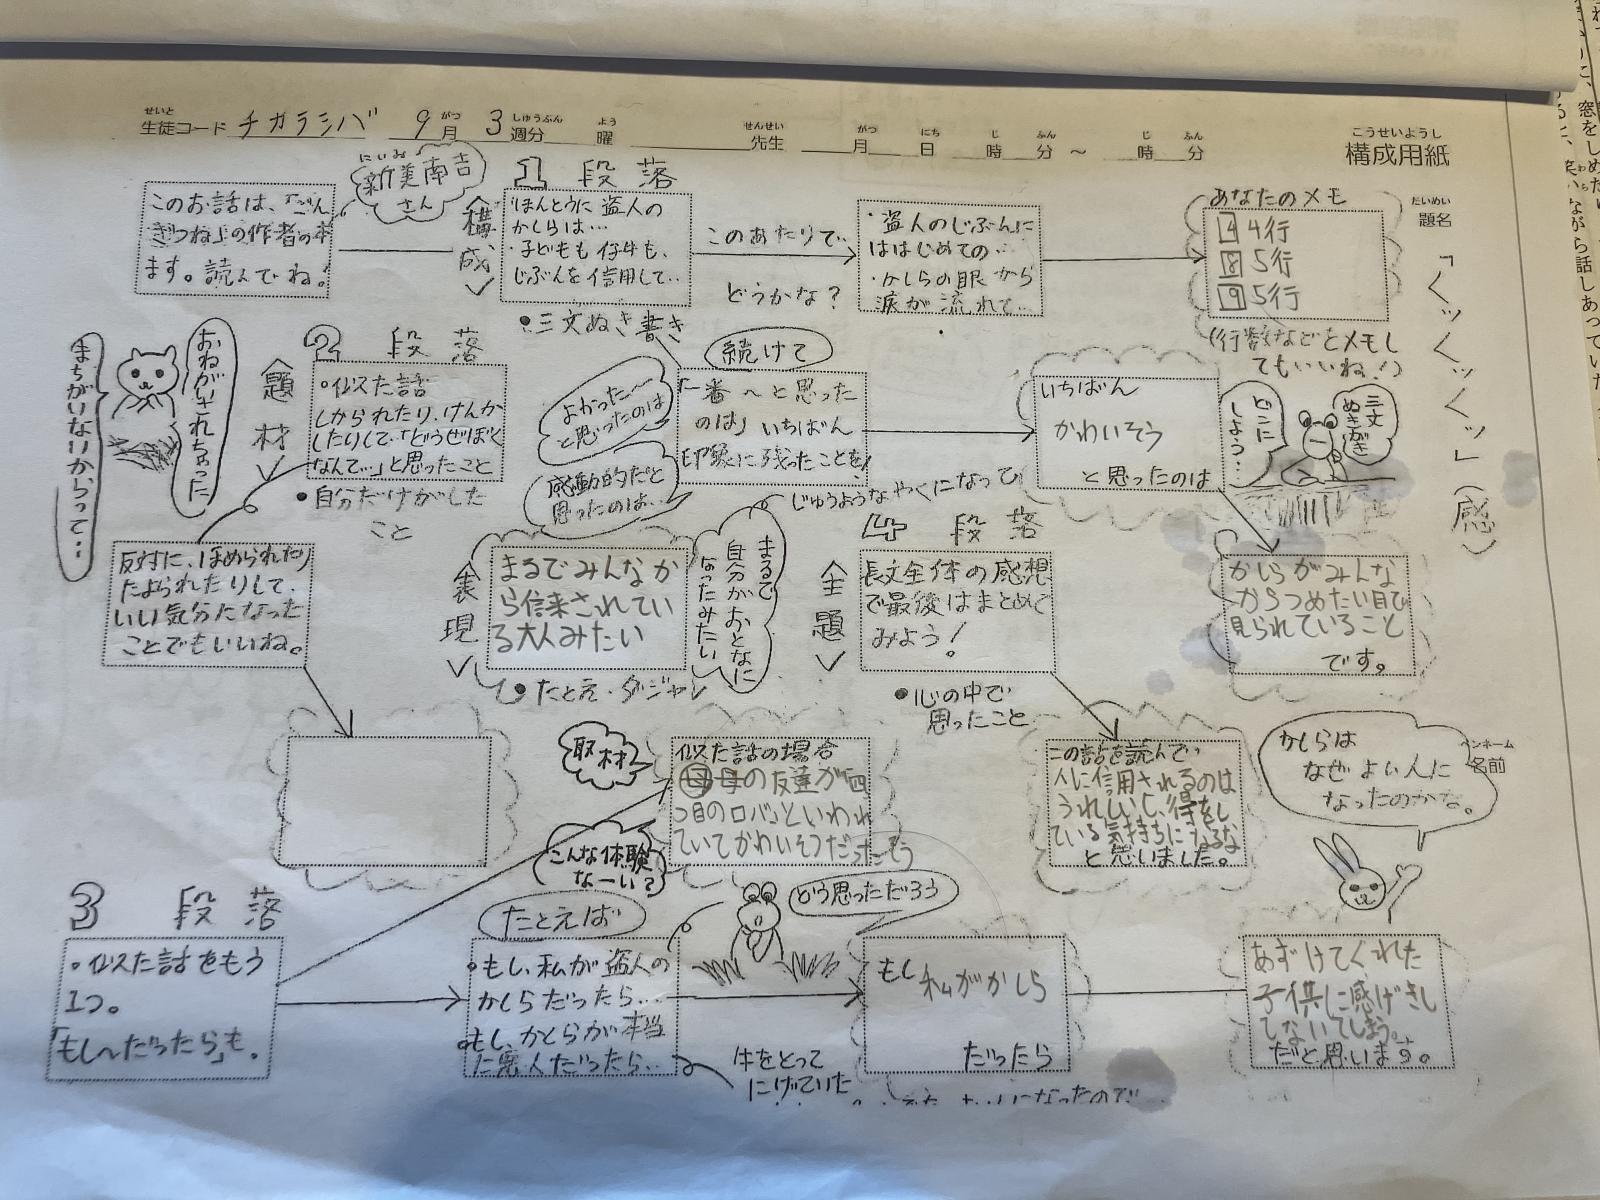 せいと
生徒コード チカラシバ 9月 3週分 曜 先生 月 日 時 分 ～ 時 分
がつ しゅうぶん よう せんせい がつ にち じ ふん じ ふん
こうせいようし
構成用紙
だいめい
題名
「くッくッくッ」(感)
ペンネーム
名前
このお話は、「ごん
ぎつね」の作者の本
ます。読んでね!
にいみ
新美南吉
さん
1 段落
〈構成〉
・ほんとうに盗人の
かしらは…
・子どもも仔牛も、
じぶんを信用して…
・三文ぬき書き
このあたりで…
どうかな?
・盗人のじぶんに
ははじめての…
・かしらの眼から
涙が流れて…
あなたのメモ
4 4行
8 5行
9 5行
(行数などとメモし
てもいいね!)
続けて
「一番～と思った
のは」いちばん
印象に残ったことを!
よかった～
と思ったのは
感動的だと
思ったのは…
いちばん
かわいそう
と思ったのは
どこに
しよう…
三文
ぬきがき
かしらがみんな
からつめたい目で
見られていること
です。
2 段落
〈題材〉
・似た話
しかられたり、けんか
したりして、「どうせぼく
なんて…」と思ったこと
・自分だけがした
こと
おねがいされちゃった
まちがいないからって…
反対に、ほめられたり
たよられたりして、
いい気分になった
ことでもいいね。
3 段落
・似た話をもう
1つ。
「もし～だったら」も。
取材
こんな体験
なーい?
似た話の場合
母 母の友達が「四
つ目のロバ」といわれ
ていてかわいそうだったそう
たとえば
・もし、私が盗人の
かしらだったら…
もし、かしらが本当
に悪人だったら…
どう思っただろう
牛をとって
にげていた
もし
私がかしら
だったら
あずけてくれた
子供に感げきし
てないてしまう。
だと思います。
〈表現〉
まるでみんなか
ら信来されてい
る大人みたい
・たとえ・ダジャレ
まるで
自分がおとなに
なったみたい
じゅうようなやくになって
4 段落
〈主題〉
長文全体の感想
で最後はまとめて
みよう!
・心の中で
思ったこと
この話を読んで、
人に信用されるのは
うれしいし、得をし
ている気持ちになるな
と思いました。
かしらは
なぜよい人に
なったのかな。